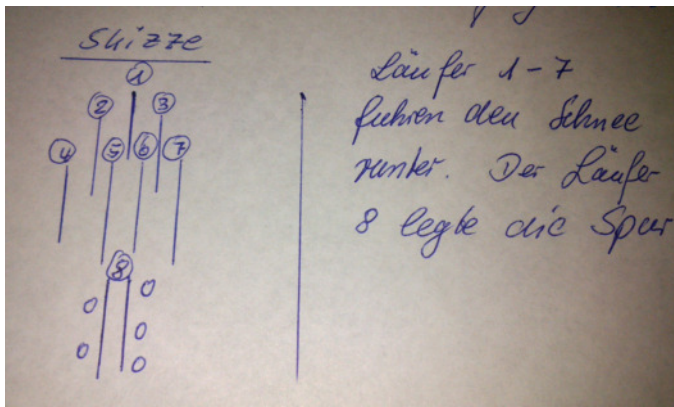 Skizze
1
2 3
4 5 6 7
8
Läufer 1-7
fuhren den Schnee
runter. Der Läufer
8 legte die Spur